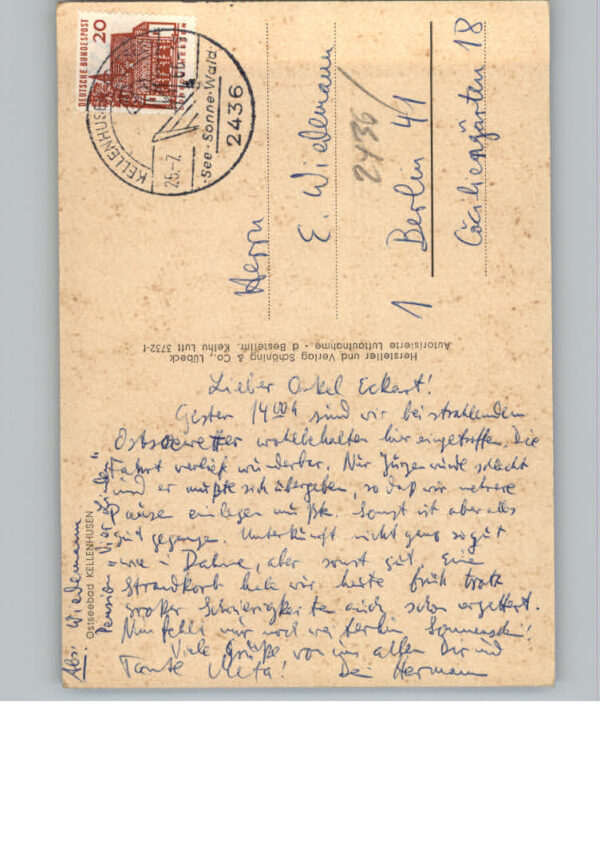 DEUTSCHE BUNDESPOST
20
KELLENHUSEN
25.-7.
·See·Sonne·Wald·
2436
Herrn
E. Wiedemann
2436
1 Berlin 41
Cäciliengärten 18
Hersteller und Verlag Schöning & Co., Lübeck
Autorisierte Luftaufnahme - d Bestellnr. Kelhu Luft 3732-f
Ostseebad KELLENHUSEN
Abs: Wiedemann
Pension "Vier Linden"
Lieber Onkel Eckart!
Gestern 14⁰⁰ sind wir bei strahlendem
Ostseewetter wohlbehalten hier eingetroffen. Die
Fahrt verlief wunderbar. Nur Jürgen wurde schlecht
und er mußte sich übergeben, so daß wir mehrere
Pausen einlegen mußten. Sonst ist aber alles
gut gegangen. Unterkunft nicht ganz so gut
wie in Dahme, aber sonst gut. Einen
Strandkorb haben wir heute früh trotz
großer Schwierigkeiten auch schon ergattert.
Nun fehlt nur noch weiterhin Sonnenschein!
Viele Grüße von uns allen Dir und
Tante Meta! Dein Hermann